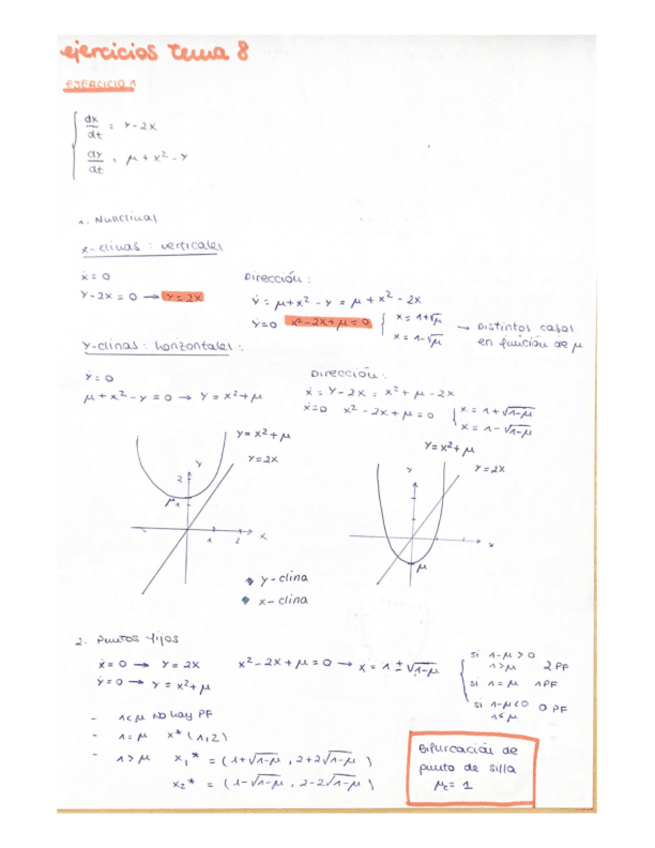 ejercicios tema 8
EJERCICIO 1
dx/dt = y-2x
dy/dt = μ + x² - y
1. Nullclinas
x-clinas : verticales
ẋ = 0
y-2x = 0 → y = 2x
Dirección :
ẏ = μ+x² - y = μ + x² - 2x
ẏ=0 x²-2x+μ=0 { x = 1+√μ
x = 1-√μ
→ Distintos casos
en función de μ
y-clinas : horizontales :
ẏ = 0
μ + x² - y = 0 → y = x²+μ
Dirección :
ẋ = y-2x = x²+μ-2x
ẋ=0 x²-2x+μ=0 { x = 1+√1-μ
x = 1-√1-μ
y = x²+μ
y = 2x
y
2
μ 1
1 2 x
y = x²+μ
y = 2x
y
x
μ
y-clina
x-clina
2. Puntos fijos
ẋ = 0 → y = 2x
ẏ = 0 → y = x²+μ
x²-2x+μ=0 → x = 1 ± √1-μ
si 1-μ > 0
1>μ 2 PF
si 1=μ 1PF
si 1-μ<0 0 PF
1<μ
- 1<μ No hay PF
- 1=μ x* (1,2)
- 1>μ x₁* = (1+√1-μ , 2+2√1-μ )
x₂* = (1-√1-μ , 2-2√1-μ )
Bifurcación de
punto de silla
μc = 1